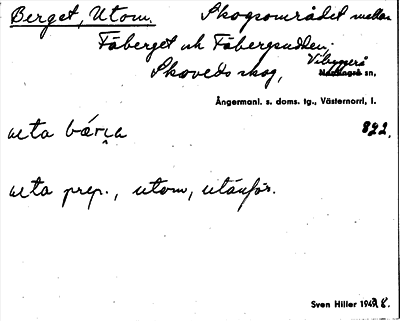 Berget, Utom. Skogsområdet mellan
Fäberget och Fäbergsudden;
Skoveds skog, Vibyggerå
sn,
Ångermanl. s. doms. tg., Västernorrl, l.
uta bärͅa 822.
uta prep., utom, utanför.
Sven Hiller 1948.